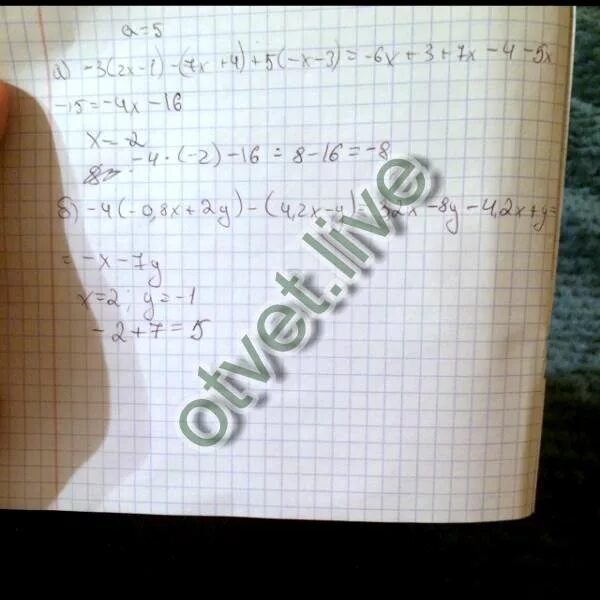 a=5
а) -3(2x-1) -(7x+4)+5(-x-3)=-6x+3+7x-4-5x
-15=-4x-16
x=-2
-4·(-2)-16=8-16=-8
б) -4(-0,8x+2y)-(4,2x-y)=3,2x-8y-4,2x+y=
=-x-7y
x=2; y=-1
-2+7=5
otvet.live